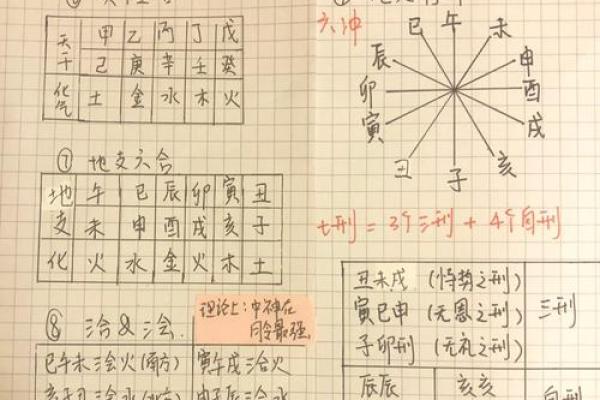 天干 甲 乙 丙 丁 戊
己 庚 辛 壬 癸
化气 土 金 水 木 火
⑦ 地支六合
地支 午 巳 辰 卯 寅 丑
未 申 酉 戌 亥 子
化 火 水 金 火 木 土
理论上:中神在
月令最强
巳午未三会火(南方) 寅午戌三合火
六冲
巳 午 未
辰 申
卯 酉
寅 戌
丑 子 亥
七刑 = 3个三刑 + 4个自刑
丑未戌 (恃势之刑)
寅巳申 (无恩之刑) 三刑
子卯刑 (无礼之刑)
辰辰 亥亥 自刑